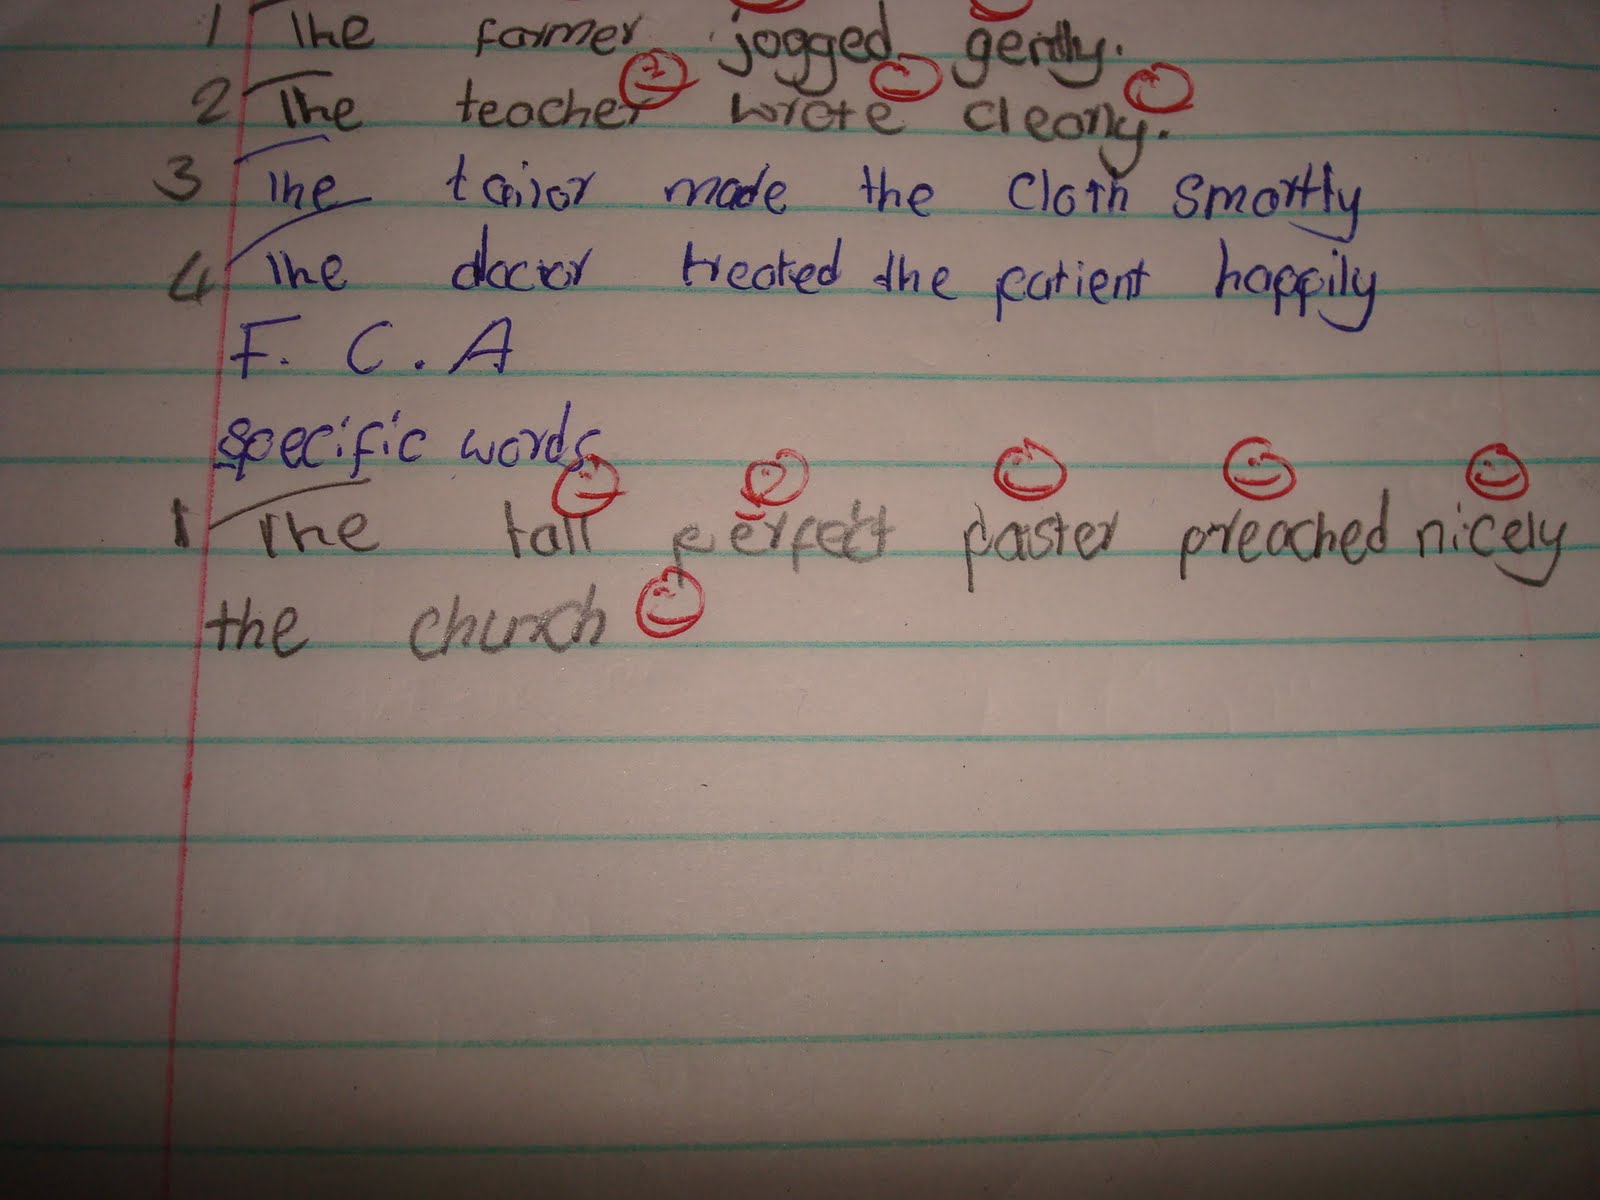 1 The farmer jogged gently.
2 The teacher wrote cleany.
3 The tailor made the cloth smartly
4 The doctor treated the patient happily
F. C. A
specific words
1 The tall perfect paster preached nicely
the church